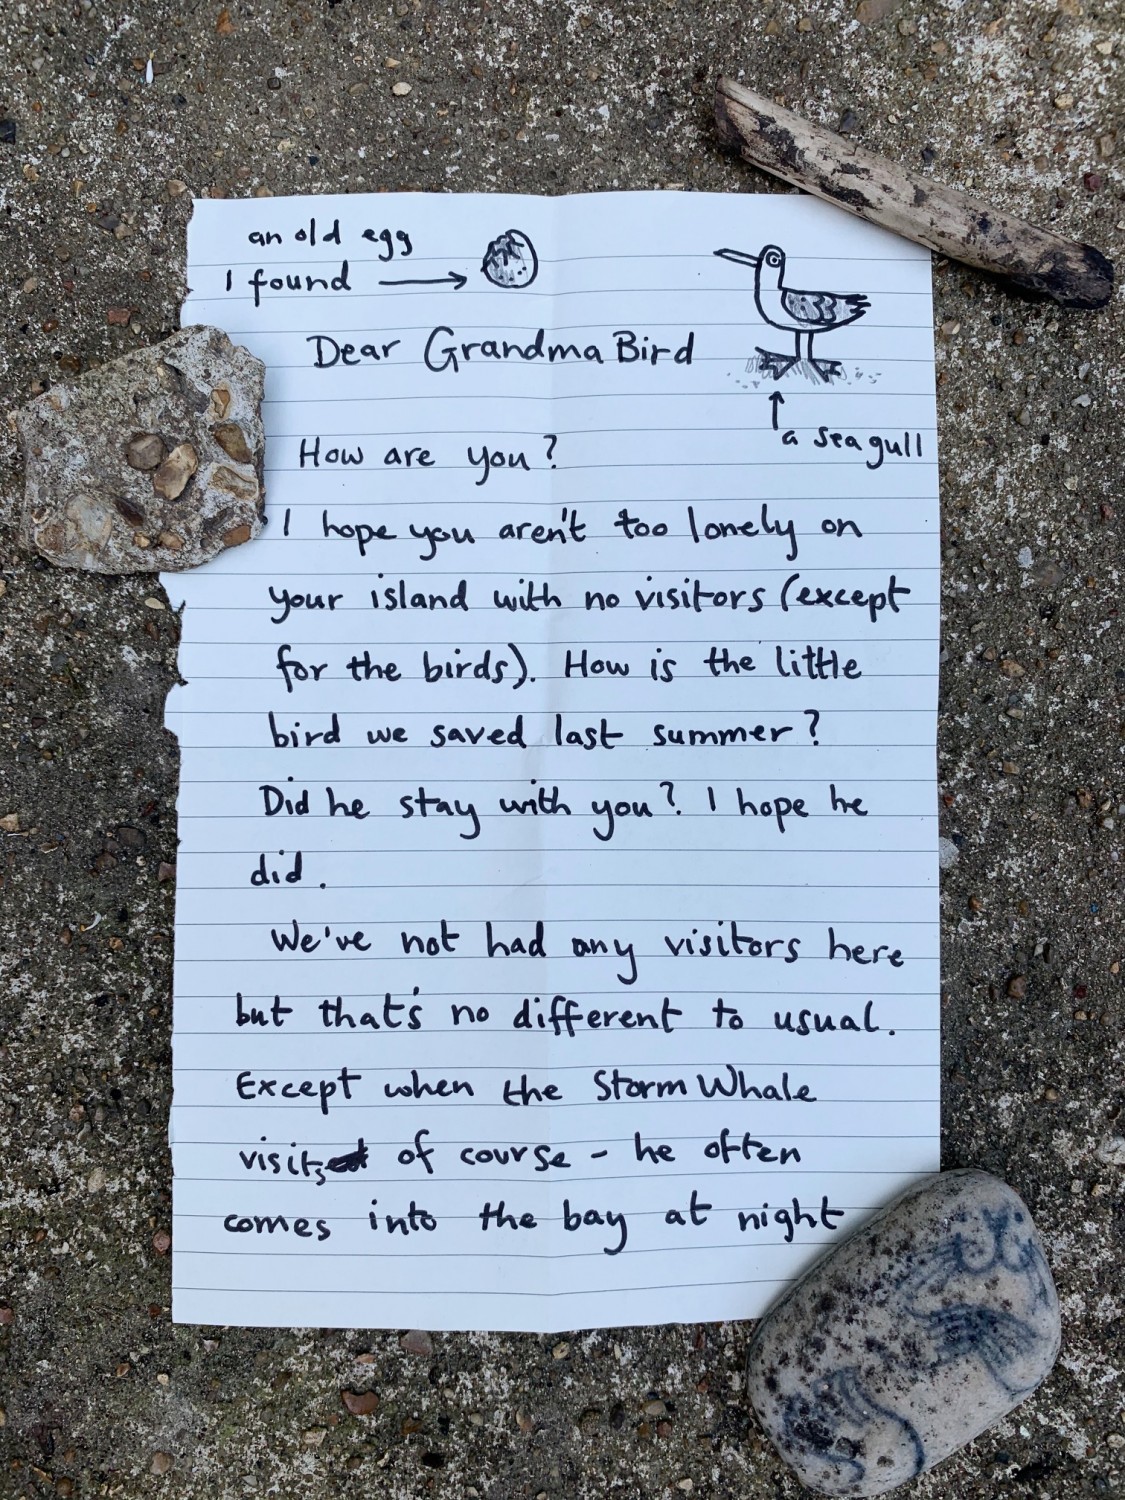 an old egg
I found
Dear Grandma Bird
a seagull
How are you?
I hope you aren't too lonely on
your island with no visitors (except
for the birds). How is the little
bird we saved last summer?
Did he stay with you? I hope he
did.
We've not had any visitors here
but that's no different to usual.
Except when the Storm Whale
visits of course - he often
comes into the bay at night